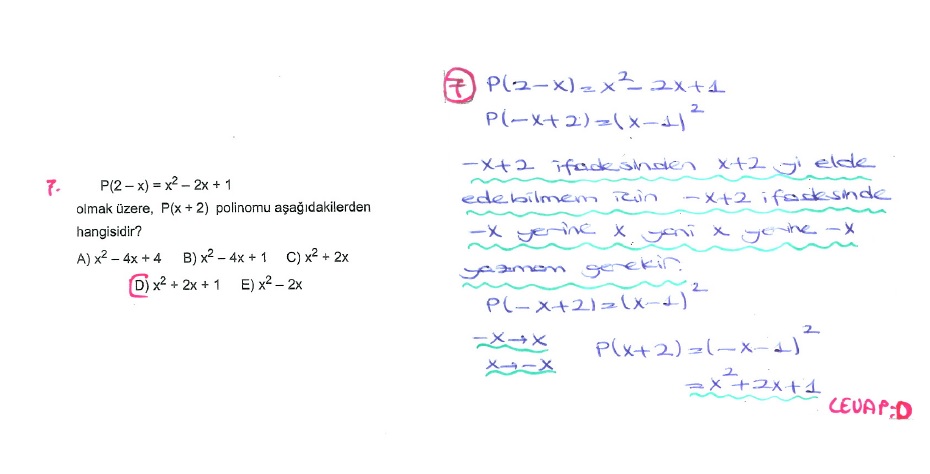 7. P(2 – x) = x² – 2x + 1
olmak üzere, P(x + 2) polinomu aşağıdakilerden
hangisidir?
A) x² – 4x + 4 B) x² – 4x + 1 C) x² + 2x
D) x² + 2x + 1 E) x² – 2x
7 P(2-x) = x² - 2x+1
P(-x+2) = (x-1)²
-x+2 ifadesinden x+2 yi elde
edebilmem için -x+2 ifadesinde
-x yerine x yani x yerine -x
yazmam gerekir.
P(-x+2) = (x-1)²
-x→x
x→-x
P(x+2) = (-x-1)²
= x²+2x+1
CEVAP:D